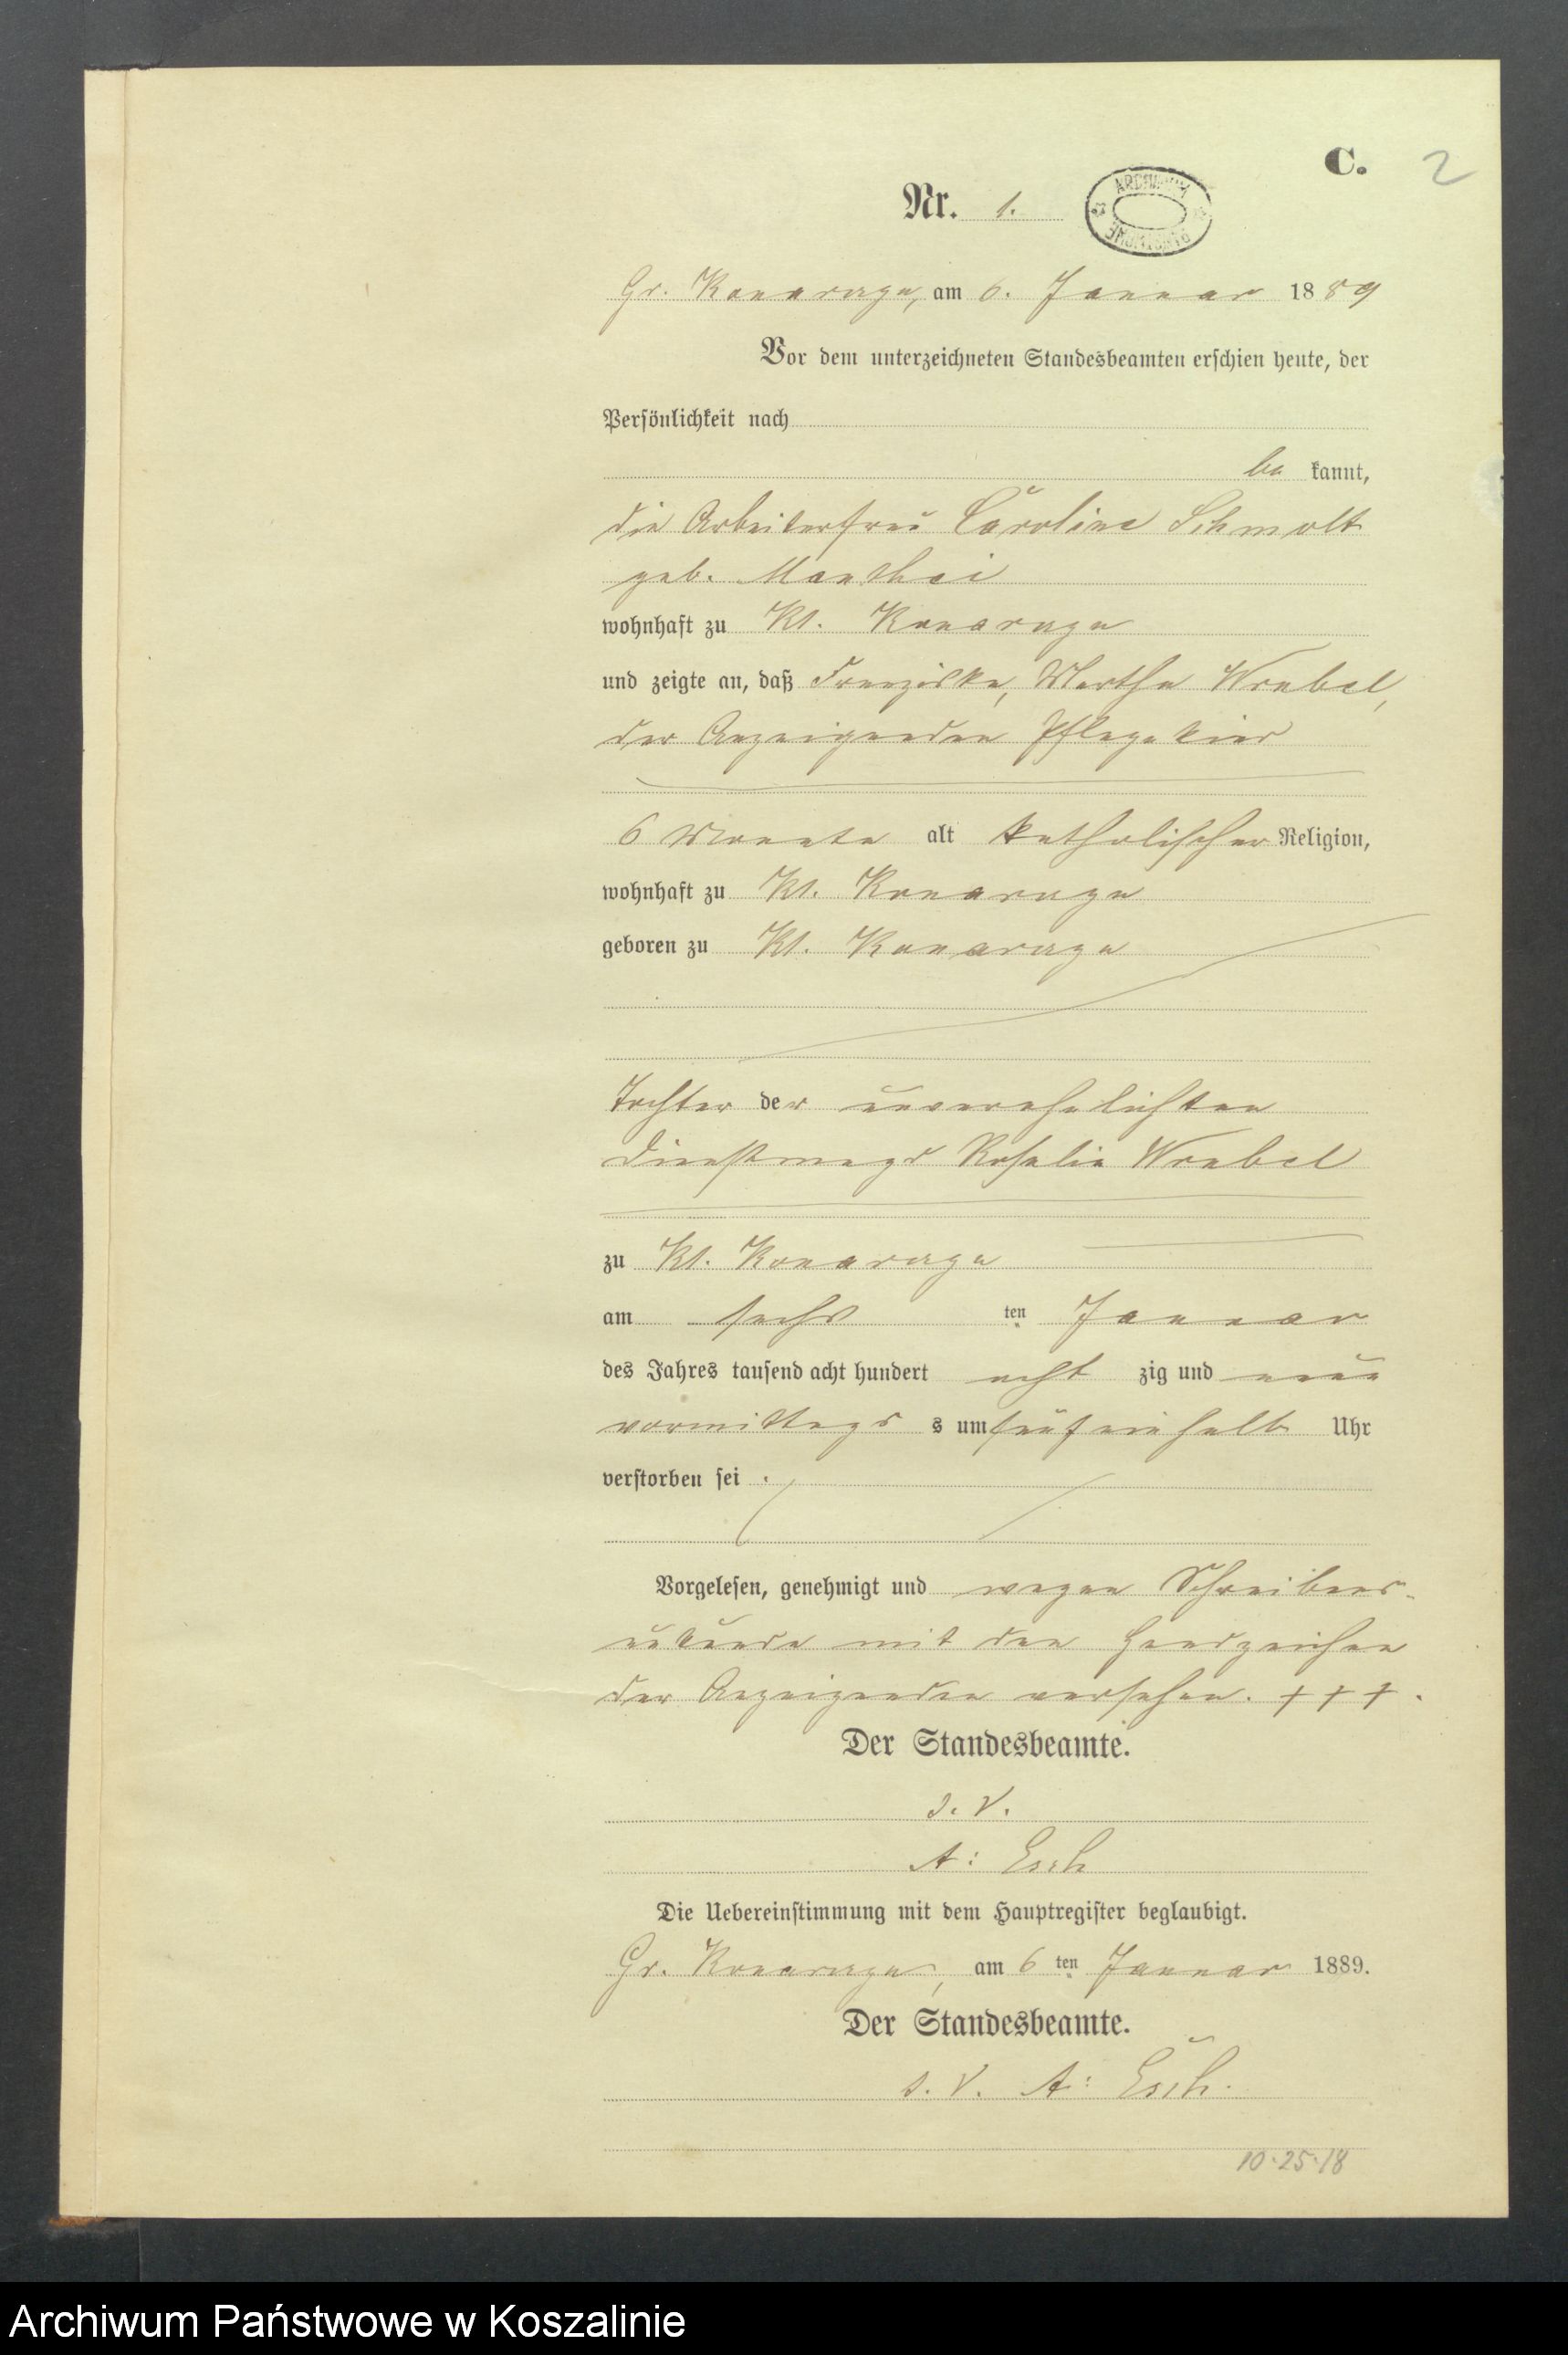 C. 2
Nr. 1.
Gr. Konarzyn, am 6. Januar 1889
Vor dem unterzeichneten Standesbeamten erschien heute, der
Persönlichkeit nach
be kannt,
die Arbeiterfrau Caroline Schmolt
geb. Manthei
wohnhaft zu Kl. Konarzyn
und zeigte an, daß Franziska, Martha Wrobel,
der Anzeigenden Pflegekind
6 Monate alt katholischer Religion,
wohnhaft zu Kl. Konarzyn
geboren zu Kl. Konarzyn
Tochter der unverehelichten
Dienstmagd Rosalie Wrobel
zu Kl. Konarzyn
am sechs ten Januar
des Jahres tausend acht hundert acht zig und neun
vormittags s um fünfeinhalb Uhr
verstorben sei.
Vorgelesen, genehmigt und wegen Schreibens-
unkunde mit den Handzeichen
der Anzeigenden versehen. +++.
Der Standesbeamte.
A: Esch
Die Uebereinstimmung mit dem Hauptregister beglaubigt.
Gr. Konarzyn, am 6 ten Januar 1889.
Der Standesbeamte.
A: Esch.
10.25.18
Archiwum Państwowe w Koszalinie